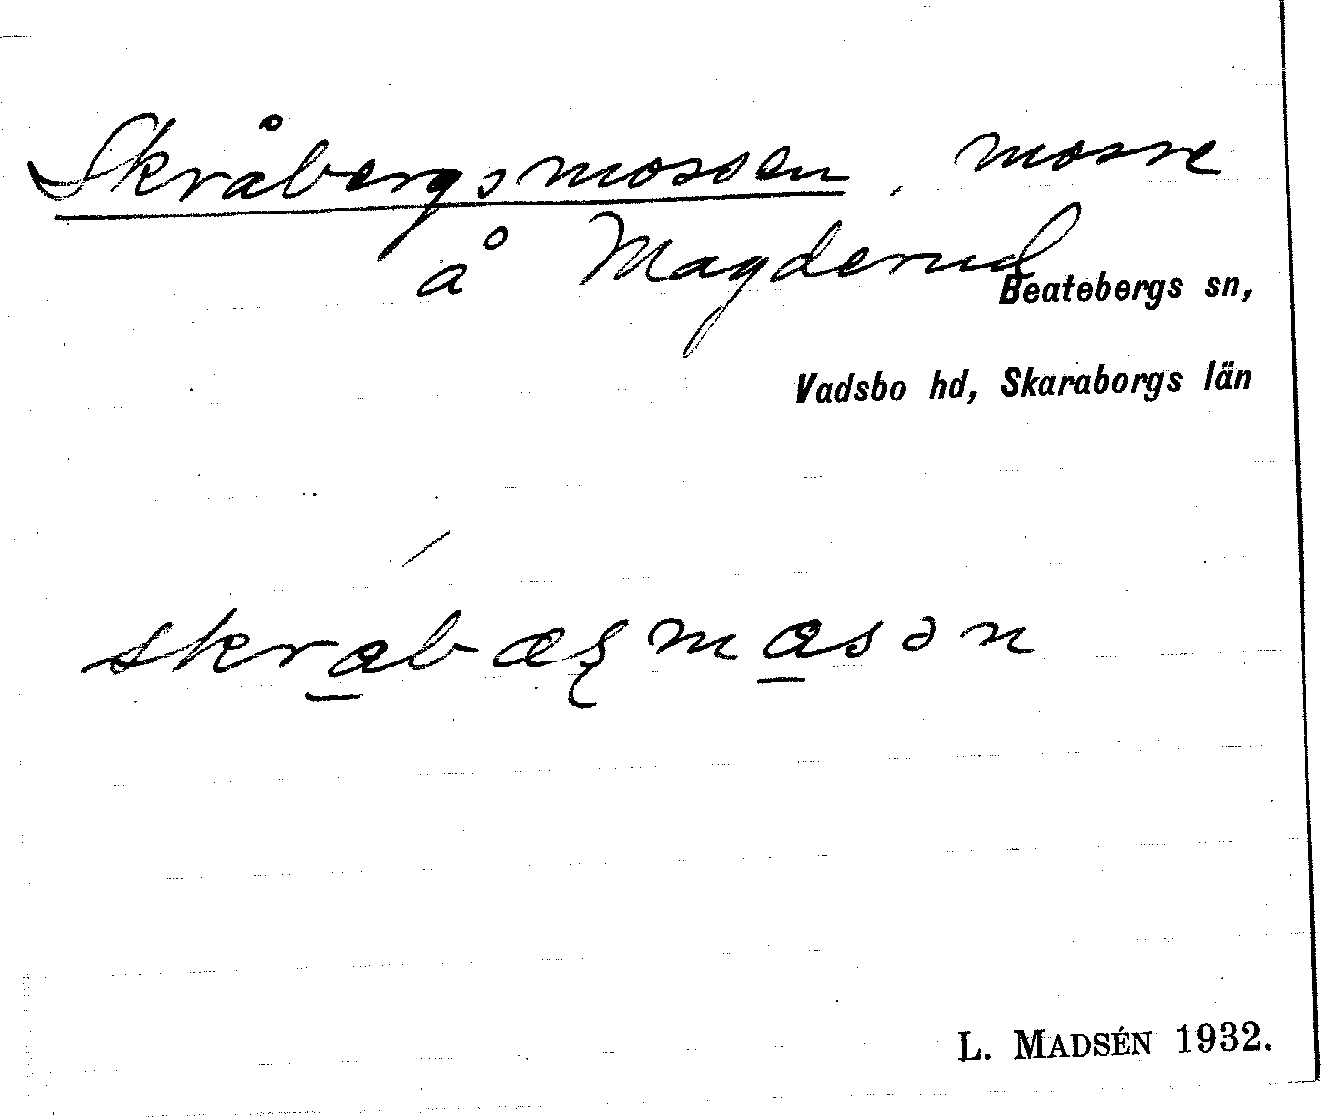 Skråbergsmossen, mosse
å Magderud
Beatebergs sn,
Vadsbo hd, Skaraborgs län
L. MADSÉN 1932.